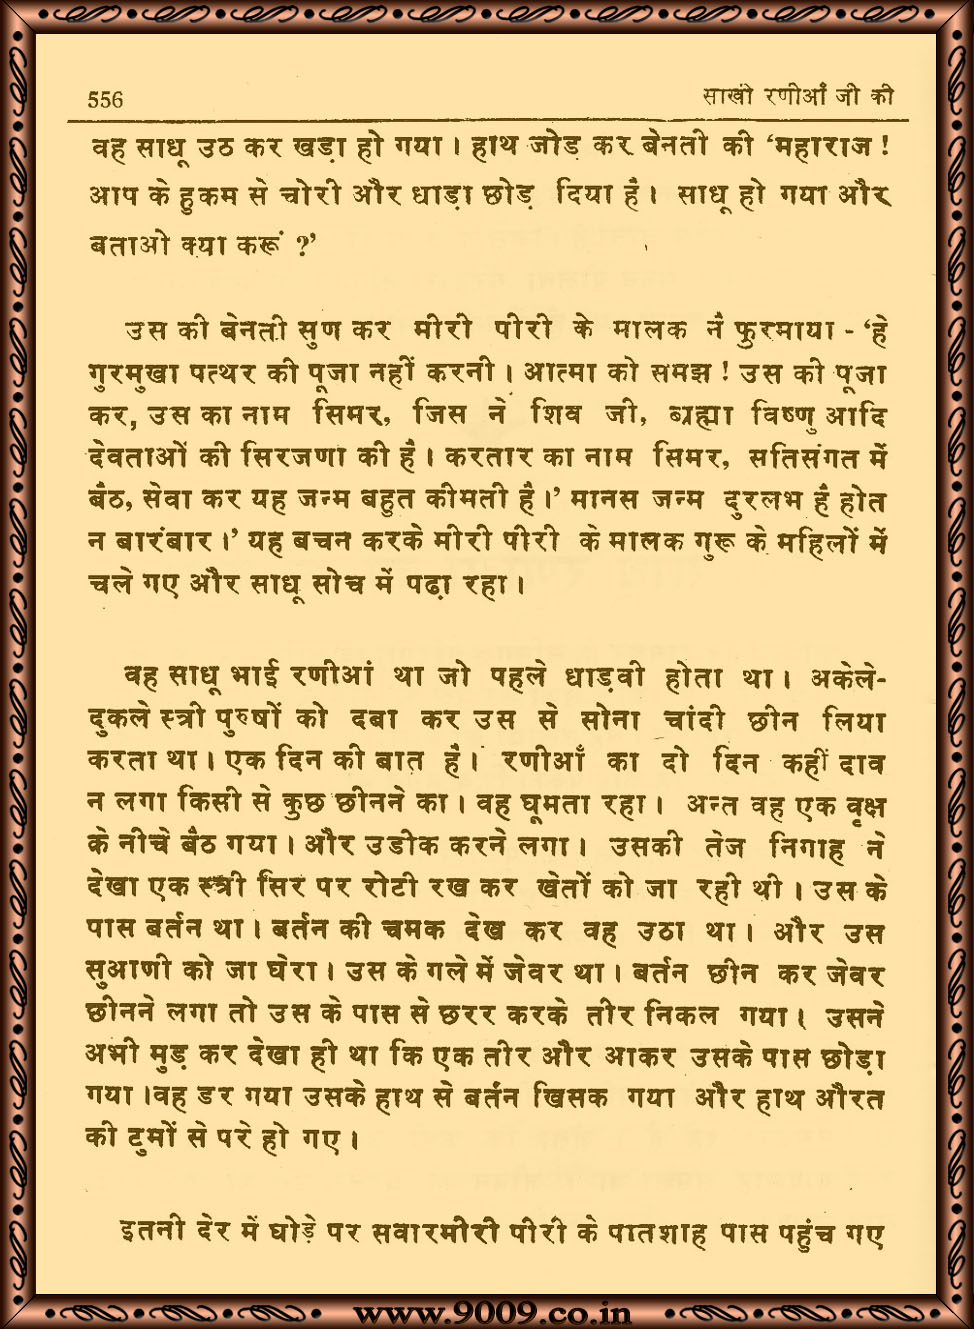 556 साखी रणीआँ जी की
वह साधू उठ कर खड़ा हो गया। हाथ जोड़ कर बेनती की ‘महाराज !
आप के हुकम से चोरी और धाड़ा छोड़ दिया है। साधू हो गया और
बताओ क्या करूं ?’
उस की बेनती सुण कर मीरी पीरी के मालक नें फुरमाया - ‘हे
गुरमुखा पत्थर की पूजा नहीं करनी। आत्मा को समझ ! उस की पूजा
कर, उस का नाम सिमर, जिस ने शिव जी, ब्रह्मा विष्णु आदि
देवताओं की सिरजणा की है। करतार का नाम सिमर, सतिसंगत में
बैठ, सेवा कर यह जन्म बहुत कीमती है।’ मानस जन्म दुरलभ है होत
न बारंबार।’ यह बचन करके मीरी पीरी के मालक गुरू के महिलों में
चले गए और साधू सोच में पढ़ा रहा।
वह साधू भाई रणीआं था जो पहले धाड़वी होता था। अकेले-
दुकले स्त्री पुरुषों को दबा कर उस से सोना चांदी छीन लिया
करता था। एक दिन की बात है। रणीआँ का दो दिन कहीं दाव
न लगा किसी से कुछ छीनने का। वह घूमता रहा। अन्त वह एक वृक्ष
के नीचे बैठ गया। और उडीक करने लगा। उसकी तेज निगाह ने
देखा एक स्त्री सिर पर रोटी रख कर खेतों को जा रही थी। उस के
पास बर्तन था। बर्तन की चमक देख कर वह उठा था। और उस
सुआणी को जा घेरा। उस के गले में जेवर था। बर्तन छीन कर जेवर
छीनने लगा तो उस के पास से छरर करके तीर निकल गया। उसने
अभी मुड़ कर देखा ही था कि एक तीर और आकर उसके पास छोड़ा
गया।वह डर गया उसके हाथ से बर्तन खिसक गया और हाथ औरत
की टुमों से परे हो गए।
इतनी देर में घोड़े पर सवारमीरी पीरी के पातशाह पास पहुंच गए
www.9009.co.in